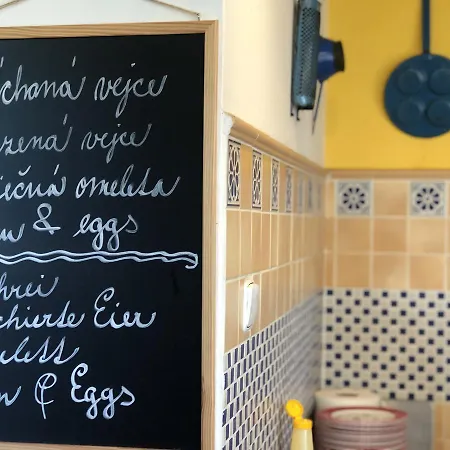 íchaná vejce
zená vejce
ečná omeleta
m & eggs
hrei
chierte Eier
lett
n & Eggs